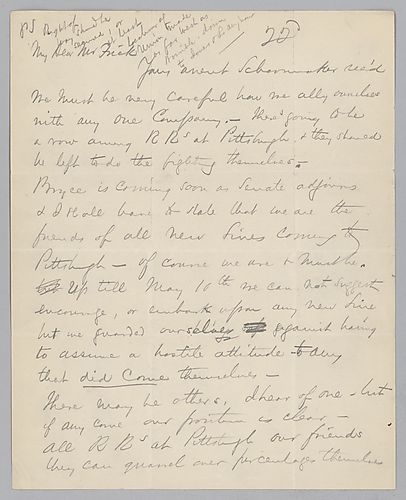 PS Right of
My Dear Mr Frick
Yours anent Schoonmaker rec'd
We must be very careful how we ally ourselves
with any one Company. — There's going to be
a row among R Rs at Pittsburgh, & they should
be left to do the fighting themselves. —
Bryce is coming soon as Senate adjourns
& I shall have to state that we are the
friends of all new lines coming to
Pittsburgh — of course we are & must be.
Up till May 10th we can not suggest
encourage, or embark upon any new line
but we guarded ourselves against having
to assume a hostile attitude to any
that did come themselves —
There may be others, I hear of one — but
if any come our position is clear —
all R Rs at Pittsburgh our friends
they can quarrel over percentages themselves